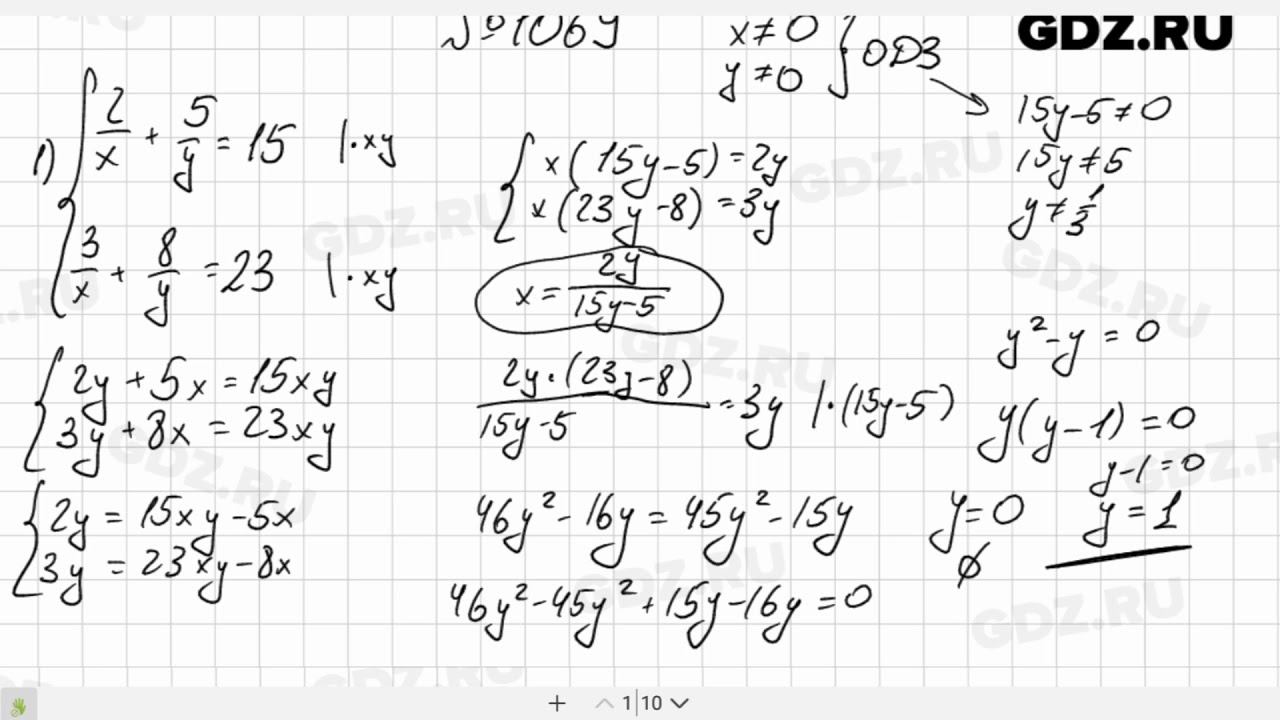 №1069
x≠0
y≠0
} ОДЗ
GDZ.RU
1) { 2/x + 5/y = 15 |·xy
3/x + 8/y = 23 |·xy
{ 2y + 5x = 15xy
3y + 8x = 23xy
{ 2y = 15xy - 5x
3y = 23xy - 8x
{ x(15y - 5) = 2y
x(23y - 8) = 3y
x = 2y/(15y-5)
2y·(23y-8)/(15y-5) = 3y |·(15y-5)
46y² - 16y = 45y² - 15y
46y² - 45y² + 15y - 16y = 0
15y - 5 ≠ 0
15y ≠ 5
y ≠ 1/3
y² - y = 0
y(y - 1) = 0
y - 1 = 0
y = 0
y = 1
∅
GDZ.RU
GDZ.RU
GDZ.RU
GDZ.RU
GDZ.RU
GDZ.RU
GDZ.RU
1 10